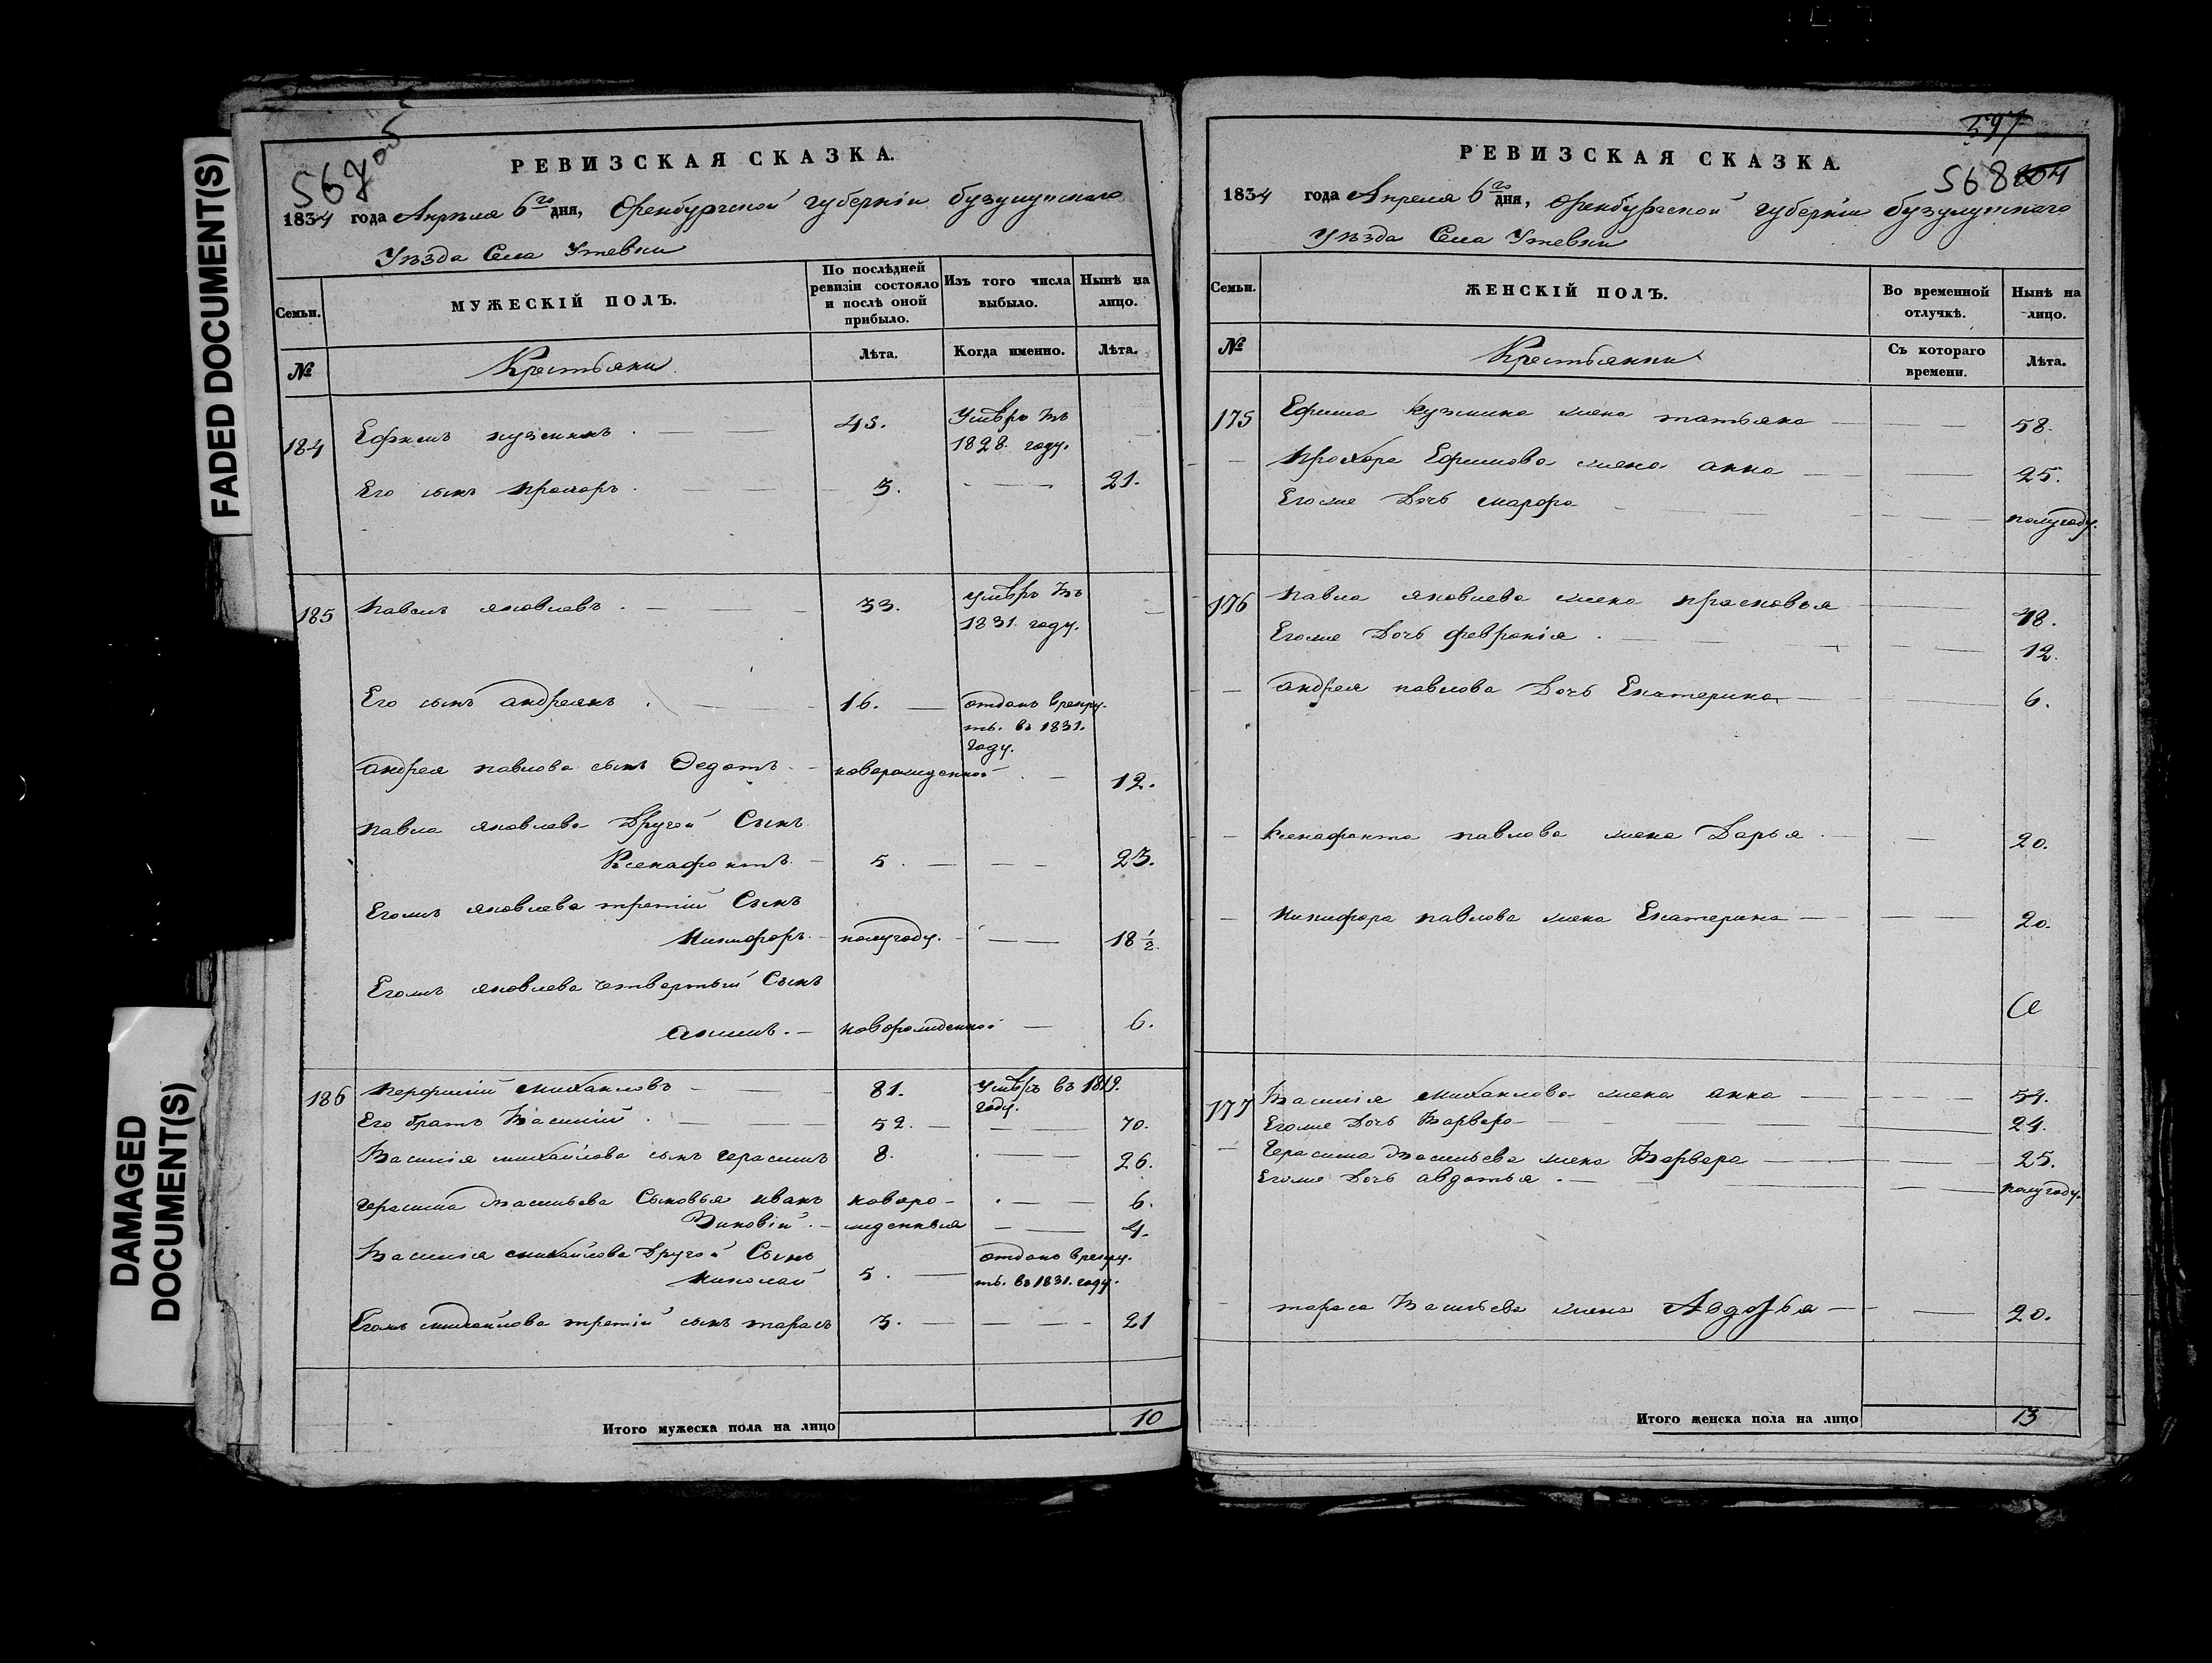 FADED DOCUMENT(S)
DAMAGED
DOCUMENT(S)
РЕВИЗСКАЯ СКАЗКА.
1834 года Апреля 6го дня, Оренбургской губернiи бузулуцкаго
Уѣзда Села Утевки
Семьи.
МУЖЕСКІЙ ПОЛЪ.
По послѣдней ревизіи состояло и послѣ оной прибыло.
Изъ того числа выбыло.
Нынѣ на лицо.
№
Крестьяни
Лѣта.
Когда именно.
Лѣта.
184 Ефимъ кузминъ. 43. Умѣръ въ
1828. году.
Его сынъ прохоръ. 3. 21.
185 Павелъ яковлевъ. 33. умѣръ въ
1831. году.
Его сынъ андреянъ. 16. отданъ врекру-
тъ. въ 1831.
году.
андрея павлова сынъ Федотъ. новорожденной 12.
павла яковлева Другой Сынъ
Ксенафонтъ. 5. 23.
Егожъ яковлева третiй Сынъ
Никифоръ. полугоду. 18 1/2.
Егожъ яковлева четвертый Сынъ
новорожденной 6.
186 михаиловъ 81. Умѣръ въ 1819.
году.
Его братъ Василiй. 52. 70.
Василiя михайлова сынъ герасимъ 8. 26.
герасима васильева Сыновья иванъ новоро- 6.
Зиновiй. жденныя 4.
Василiя михайлова Другой Сынъ отданъ врекру-
Николай 5. тъ. въ 1831. году.
Егожъ михайлова третiй сынъ тарасъ 3. 21
Итого мужеска пола на лицо 10
397
568 604
РЕВИЗСКАЯ СКАЗКА.
1834 года Апреля 6го дня, Оренбургской губернiи бузулуцкаго
Уѣзда Села Утевки
Семьи.
ЖЕНСКІЙ ПОЛЪ.
Во временной отлучкѣ.
Нынѣ на лицо.
№
Крестьянки
Съ котораго времени.
Лѣта.
175 Ефима кузмина жена татьяна 58.
Прохора Ефимова жена анна 25.
Егоже Дочь марфа полугоду.
176 павла яковлева жена прасковья 48.
Егоже Дочь февронiя. 12.
андрея павлова Дочь Екатерина 6.
Ксенафонта павлова жена Дарья. 20.
Никифора павлова жена Екатерина 20.
177 Василiя михаилова жена анна 54.
Егоже Дочь Варвара 24.
Герасима васильева жена Варвара 25.
Егоже Дочь авдотья. полугоду.
тараса Васильева жена Авдотья 20.
Итого женска пола на лицо 13